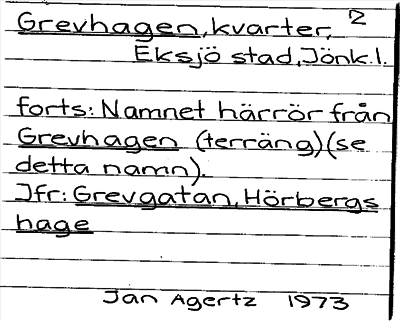 Grevhagen, kvarter, 2
Eksjö stad, Jönk.l.
forts: Namnet härrör från
Grevhagen (terräng)(se
detta namn).
Jfr: Grevgatan, Hörbergs
hage
Jan Agertz 1973